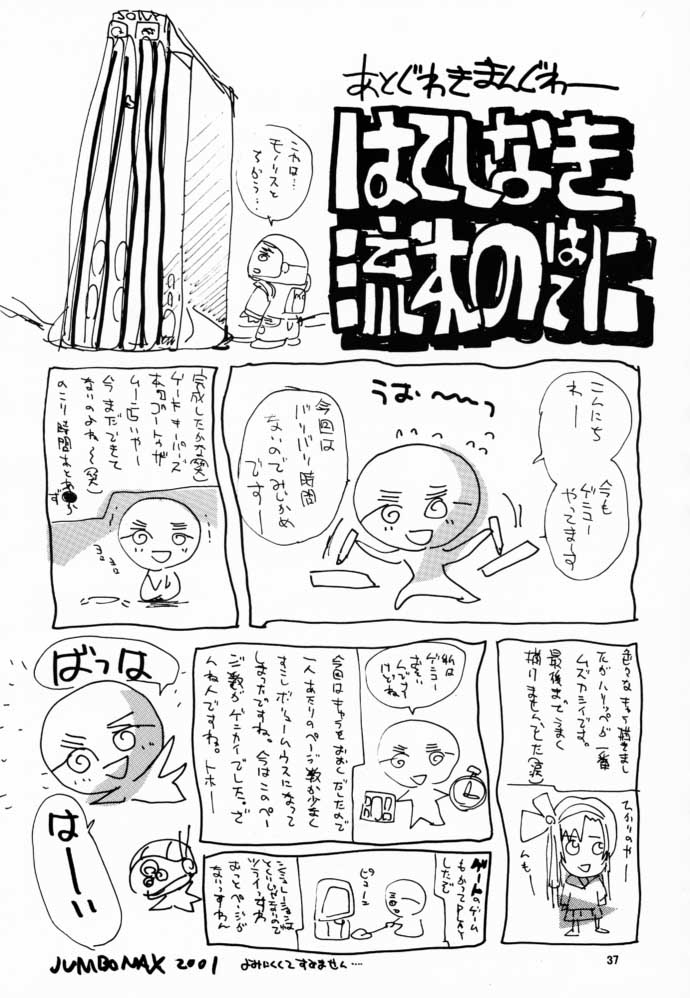 あとぐわきまんぐわー
はてしなき
流れのはてに
SONY
これは…
モノリスと
ちがう…
こんにち
わー
今も
ゲミュー
やってまーす
うお〜〜っ
今回は
バリバリ時間
ないのでみじかめ
でーすー
完成したかな(笑)
ゲートキーパーズ
今まだできて
ないのよね〜(笑)
のこり時間あと
ヨロヨロ
色々なキャラ描きまし
たがハリッペが一番
ムズカシイです。
最後までうまく
描けませんでした(涙)
んもー
私は
ゲミュー
おそい
んです
けどね
今回はキャラをおおくだしたので
一人あたりのページ数が少なく
すこしボリュームウスになって
しまったですね。今はこのペー
ジ数がゲンカイでした。で
へんねんですね。トホー
ゲートのゲーム
もかってPLAY
しただ
ピューン
シミュレーションは
ツライっすわ
ないっすわん
ばっは
はーい
JUMBO MAX 2001
よみにくくてすみません….
37